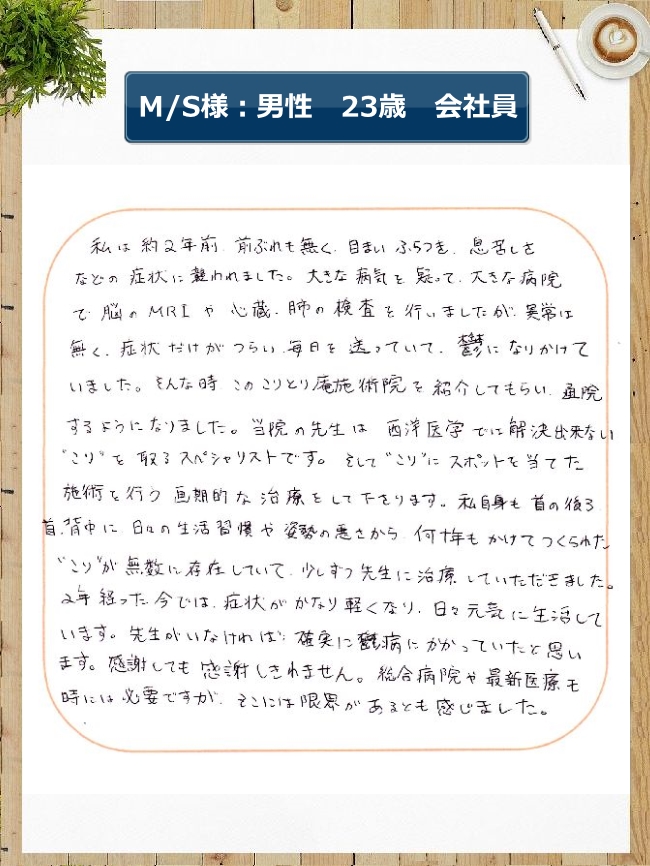 M/S様：男性　23歳　会社員
私は約2年前、前ぶれも無く、目まい ふらつき、息苦しさ
などの症状に襲われました。大きな病気を疑って、大きな病院
で脳のMRIや心蔵、肺の検査を行いましたが異常は
無く、症状だけがつらい毎日を送っていて、鬱になりかけて
いました。そんな時 このこりとり庵施術院を紹介してもらい、通院
するようになりました。当院の先生は 西洋医学でに解決出来ない
"こり"を取るスペシャリストです。そして"こり"にスポットを当てた
施術を行う画期的な治療をして下さります。私自身も首の後ろ
首、背中に日々の生活習慣や姿勢の悪さから、何十年もかけてつくられた
"こり"が無数に存在していて、少しずつ先生に治療していただきました。
2年経った今では、症状がかなり軽くなり、日々元気に生活して
います。先生がいなければ確実に鬱病にかかっていたと思い
ます。感謝しても感謝しきれません。総合病院や最新医療も
時には必要ですが、そこには限界があるとも感じました。